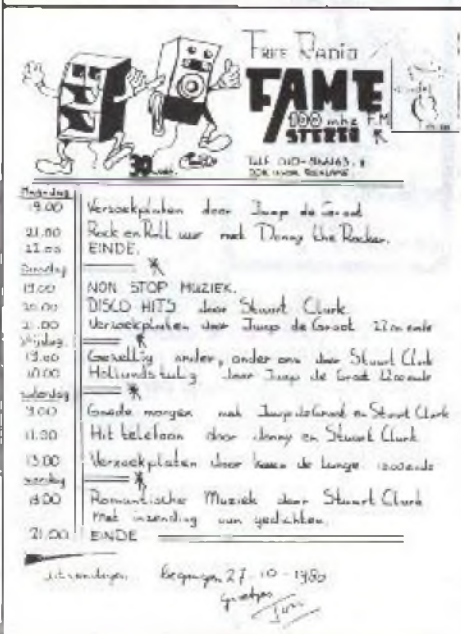 FREE RADIO
FAME
100 mhz F.M
STEREO
30
TELF 010-
VOOR UW REKLAME
Maandag
19.00 Verzoekplaten door Jaap de Groot
21.00 Rock en Roll uur met Donny the Rocker.
22.00 EINDE.
19.00 NON STOP MUZIEK.
20.00 DISCO HITS door Stuart Clark
21.00 Verzoekplaten door Jaap de Groot 22.00 einde
Vrijdag
19.00 Gezellig onder, onder ons door Stuart Clark
Hollands door Jaap de Groot einde
Zaterdag
9.00 Goede morgen met Jaap de Groot en Stuart Clark
11.30 Hit telefoon door en Stuart Clark.
13.00 Verzoekplaten door de Lange. einde
Zondag
Romantische Muziek door Stuart Clark
Met inzending van gedichten.
21.00 EINDE
uitzendingen begonnen 27-10-1980
groetjes